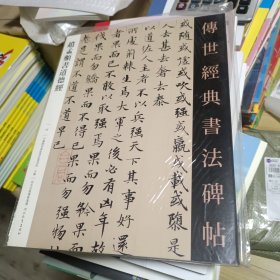 傳世經典書法碑帖
趙孟頫書道德經
或隨或噓或吹或強或羸或載或隳是
人去甚去奢去泰
以道佐人主者不以兵強天下其事好還
所處荊棘生焉大軍之後必有凶年故
果而已不敢以取強焉果而勿矜果
勿驕果而不得已是果而勿強物
老是謂不道不道早已